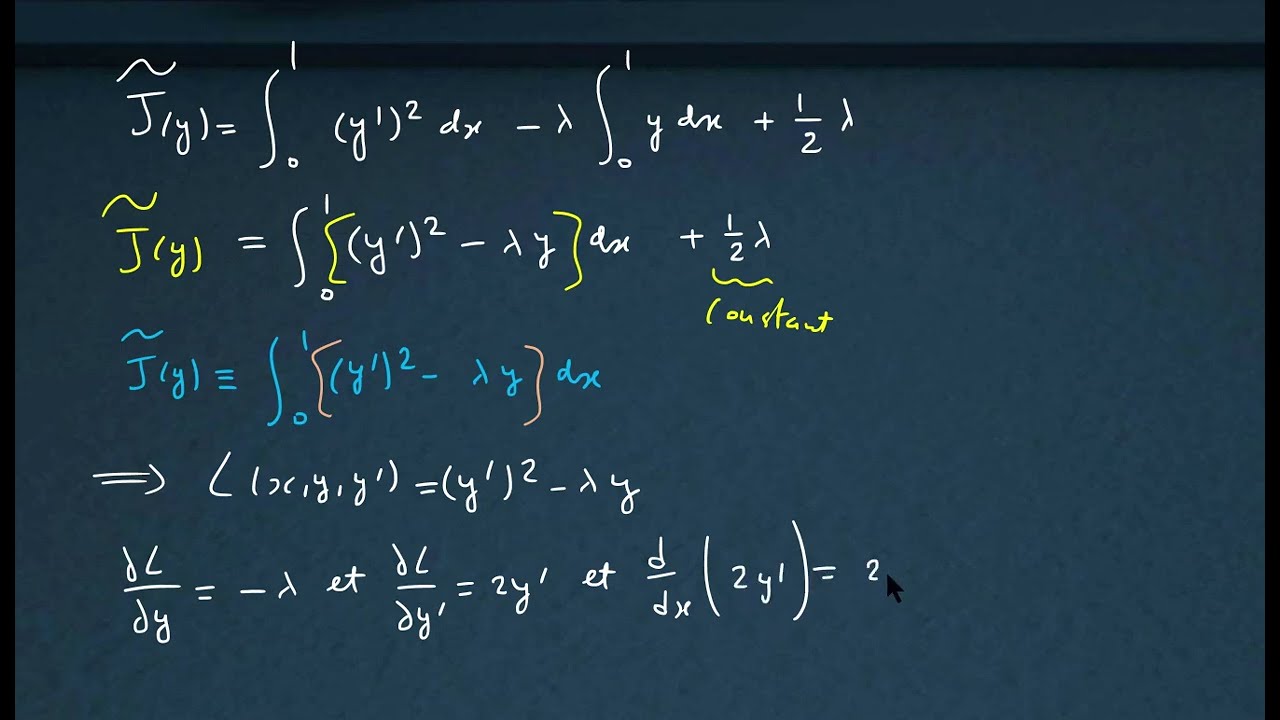 J̃(y) = ∫₀¹ (y')² dx − λ ∫₀¹ y dx + 1/2 λ
J̃(y) = ∫₀¹ [(y')² − λy] dx + 1/2 λ
constant
J̃(y) ≡ ∫₀¹ [(y')² − λy] dx
⟹ L(x,y,y') = (y')² − λy
∂L/∂y = −λ et ∂L/∂y' = 2y' et d/dx (2y') = 2